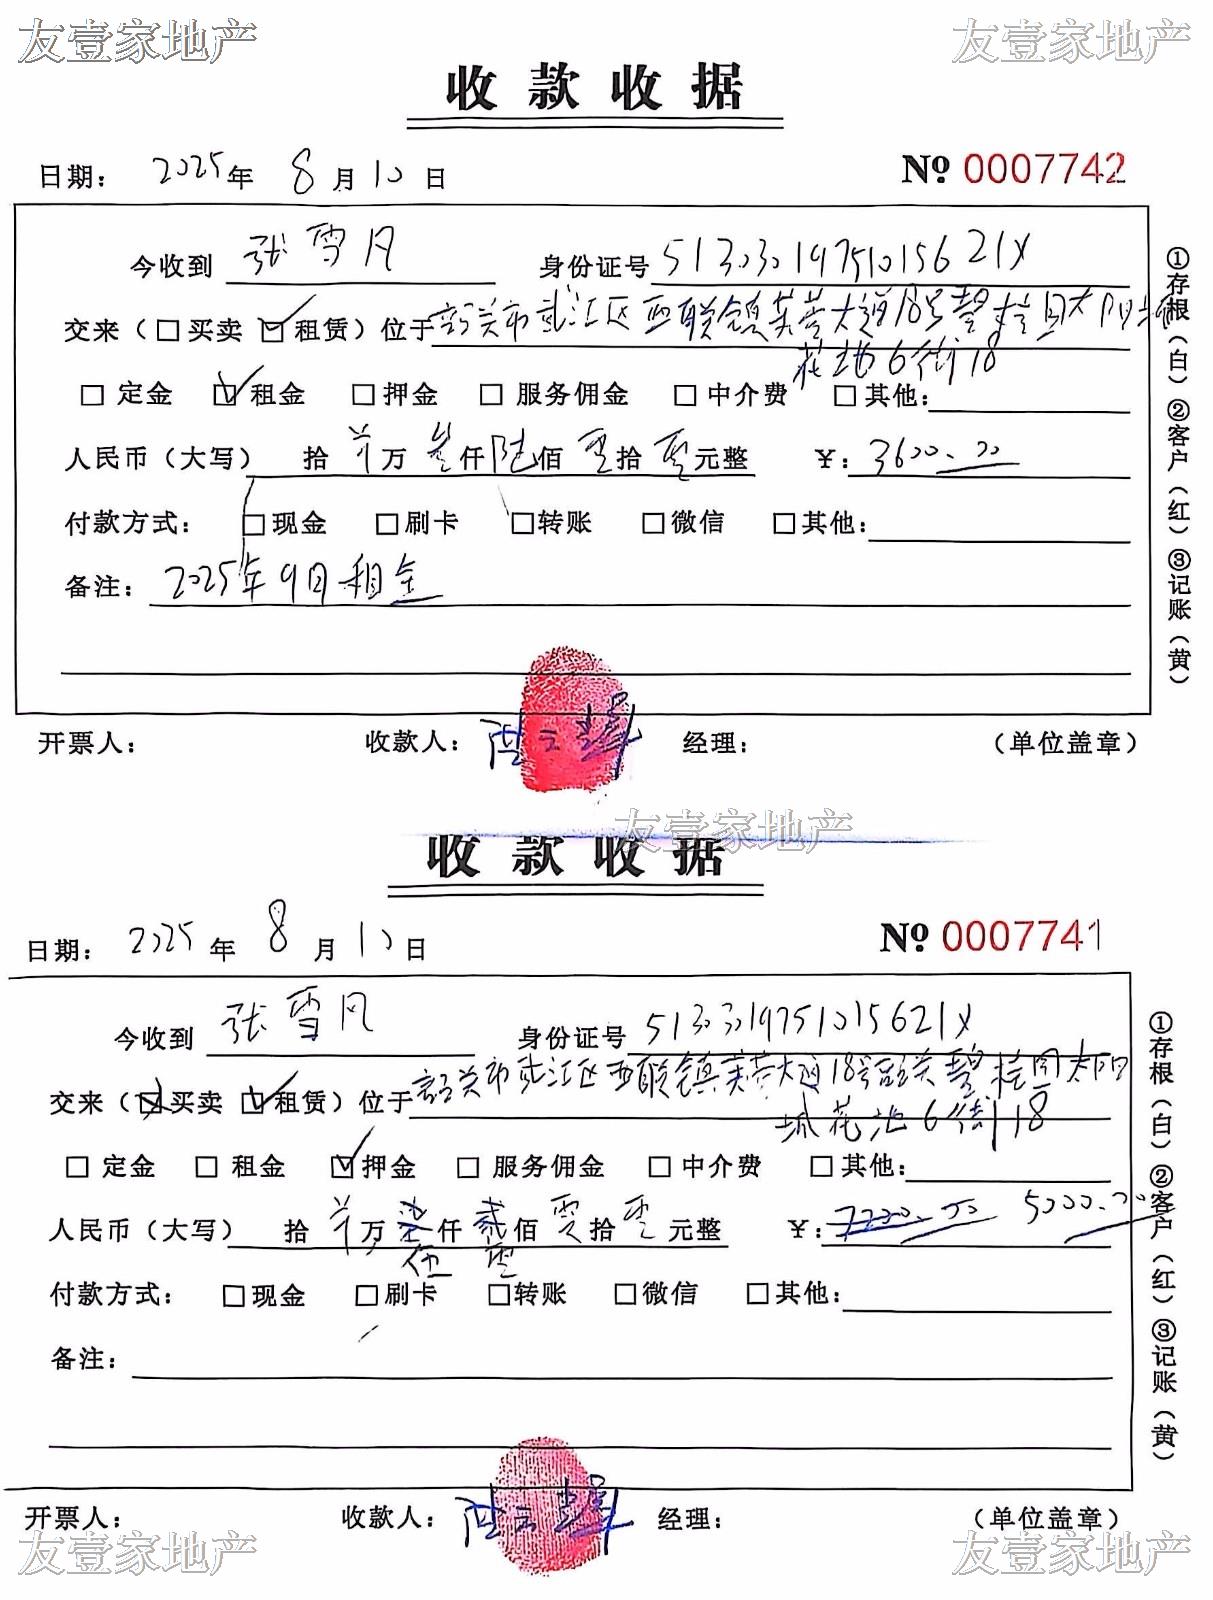 友壹家地产 友壹家地产
收款收据
日期： 2025年 8月10日 № 0007742
今收到 张雪风 身份证号 51303019751015621X
交来（□买卖 ☑租赁）位于 韶关市武江区西联镇芙蓉大道18号碧桂园太阳城
花地6街18
□ 定金 ☑租金 □押金 □ 服务佣金 □中介费 □其他:
人民币（大写） 拾 万叁仟陆佰零拾零元整 ￥: 3600.00
付款方式： □现金 □刷卡 □转账 □微信 □其他:
备注： 2025年9月租金
开票人： 收款人： 经理： （单位盖章）
①存根（白）②客户（红）③记账（黄）
友壹家地产
收款收据
日期： 2025年 8月10日 № 0007741
今收到 张雪风 身份证号 51303019751015621X
交来（☒买卖 ☑租赁）位于 韶关市武江区西联镇芙蓉大道18号韶关碧桂园太阳
城花地6街18
□ 定金 □ 租金 ☑押金 □ 服务佣金 □中介费 □其他:
人民币（大写） 拾 万柒仟贰佰零拾零元整 ￥: 7200.00 5000.00
伍 零
付款方式： □现金 □刷卡 □转账 □微信 □其他:
备注：
开票人： 收款人： 经理： （单位盖章）
①存根（白）②客户（红）③记账（黄）
友壹家地产 友壹家地产